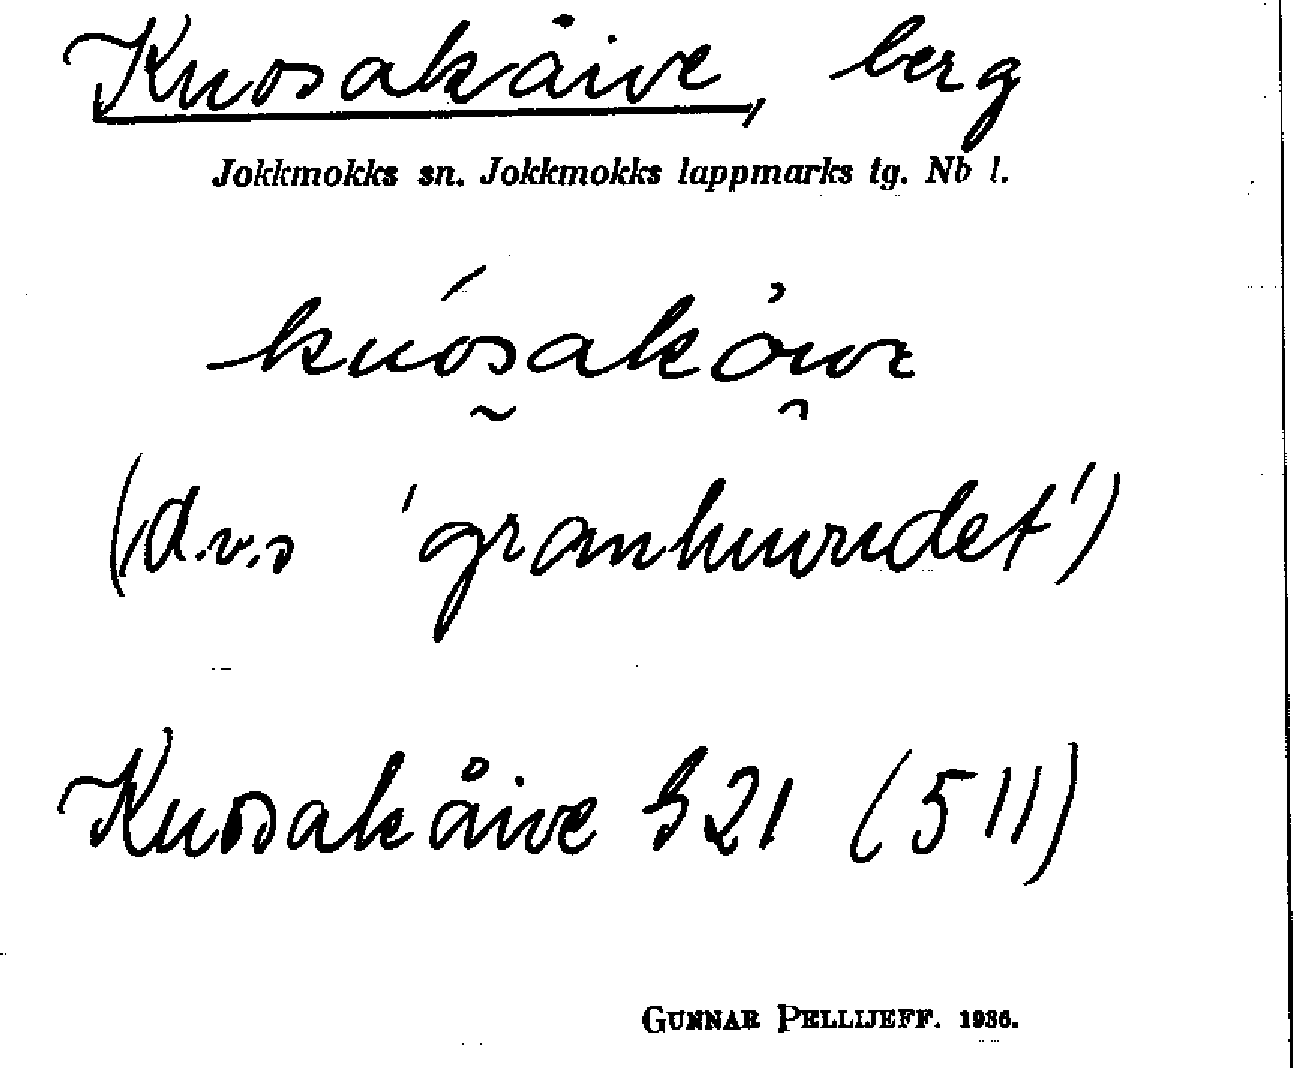 Kuosakåive, berg
Jokkmokks sn. Jokkmokks lappmarks tg. Nb l.
(d.v.s 'granhuvudet')
Kuosakåive S21 (511)
GUNNAR PELLIJEFF. 1936.